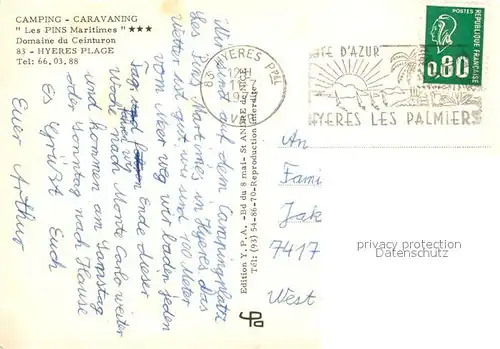 CAMPING - CARAVANING
"Les PINS Maritimes" ★★★
Domaine du Ceinturon
83 - HYERES PLAGE
Tel: 66.03.88
83 HYERES PPAL
VAR
COTE D'AZUR
HYERES LES PALMIERS
POSTES
0,80
Wir sind auf dem Campingplatz
Les Pins Maritimes in Hyeres das
Wetter ist gut, wir sind 400 Meter
vom Meer weg wir baden jeden
Tag fahren wir Ende dieser
Woche nach Monte Carlo weiter
und kommen am Samstag
oder Sonntag nach Hause
Es Grüßt Euch
Euer Arthur
Edition Y.P.A. - Bd du 8 mai - St ANDRE de NICE
Tél: (93) 54-86-70 - Reproduction interdite
An
Fami
Jak
7417
West
privacy protection
Datenschutz